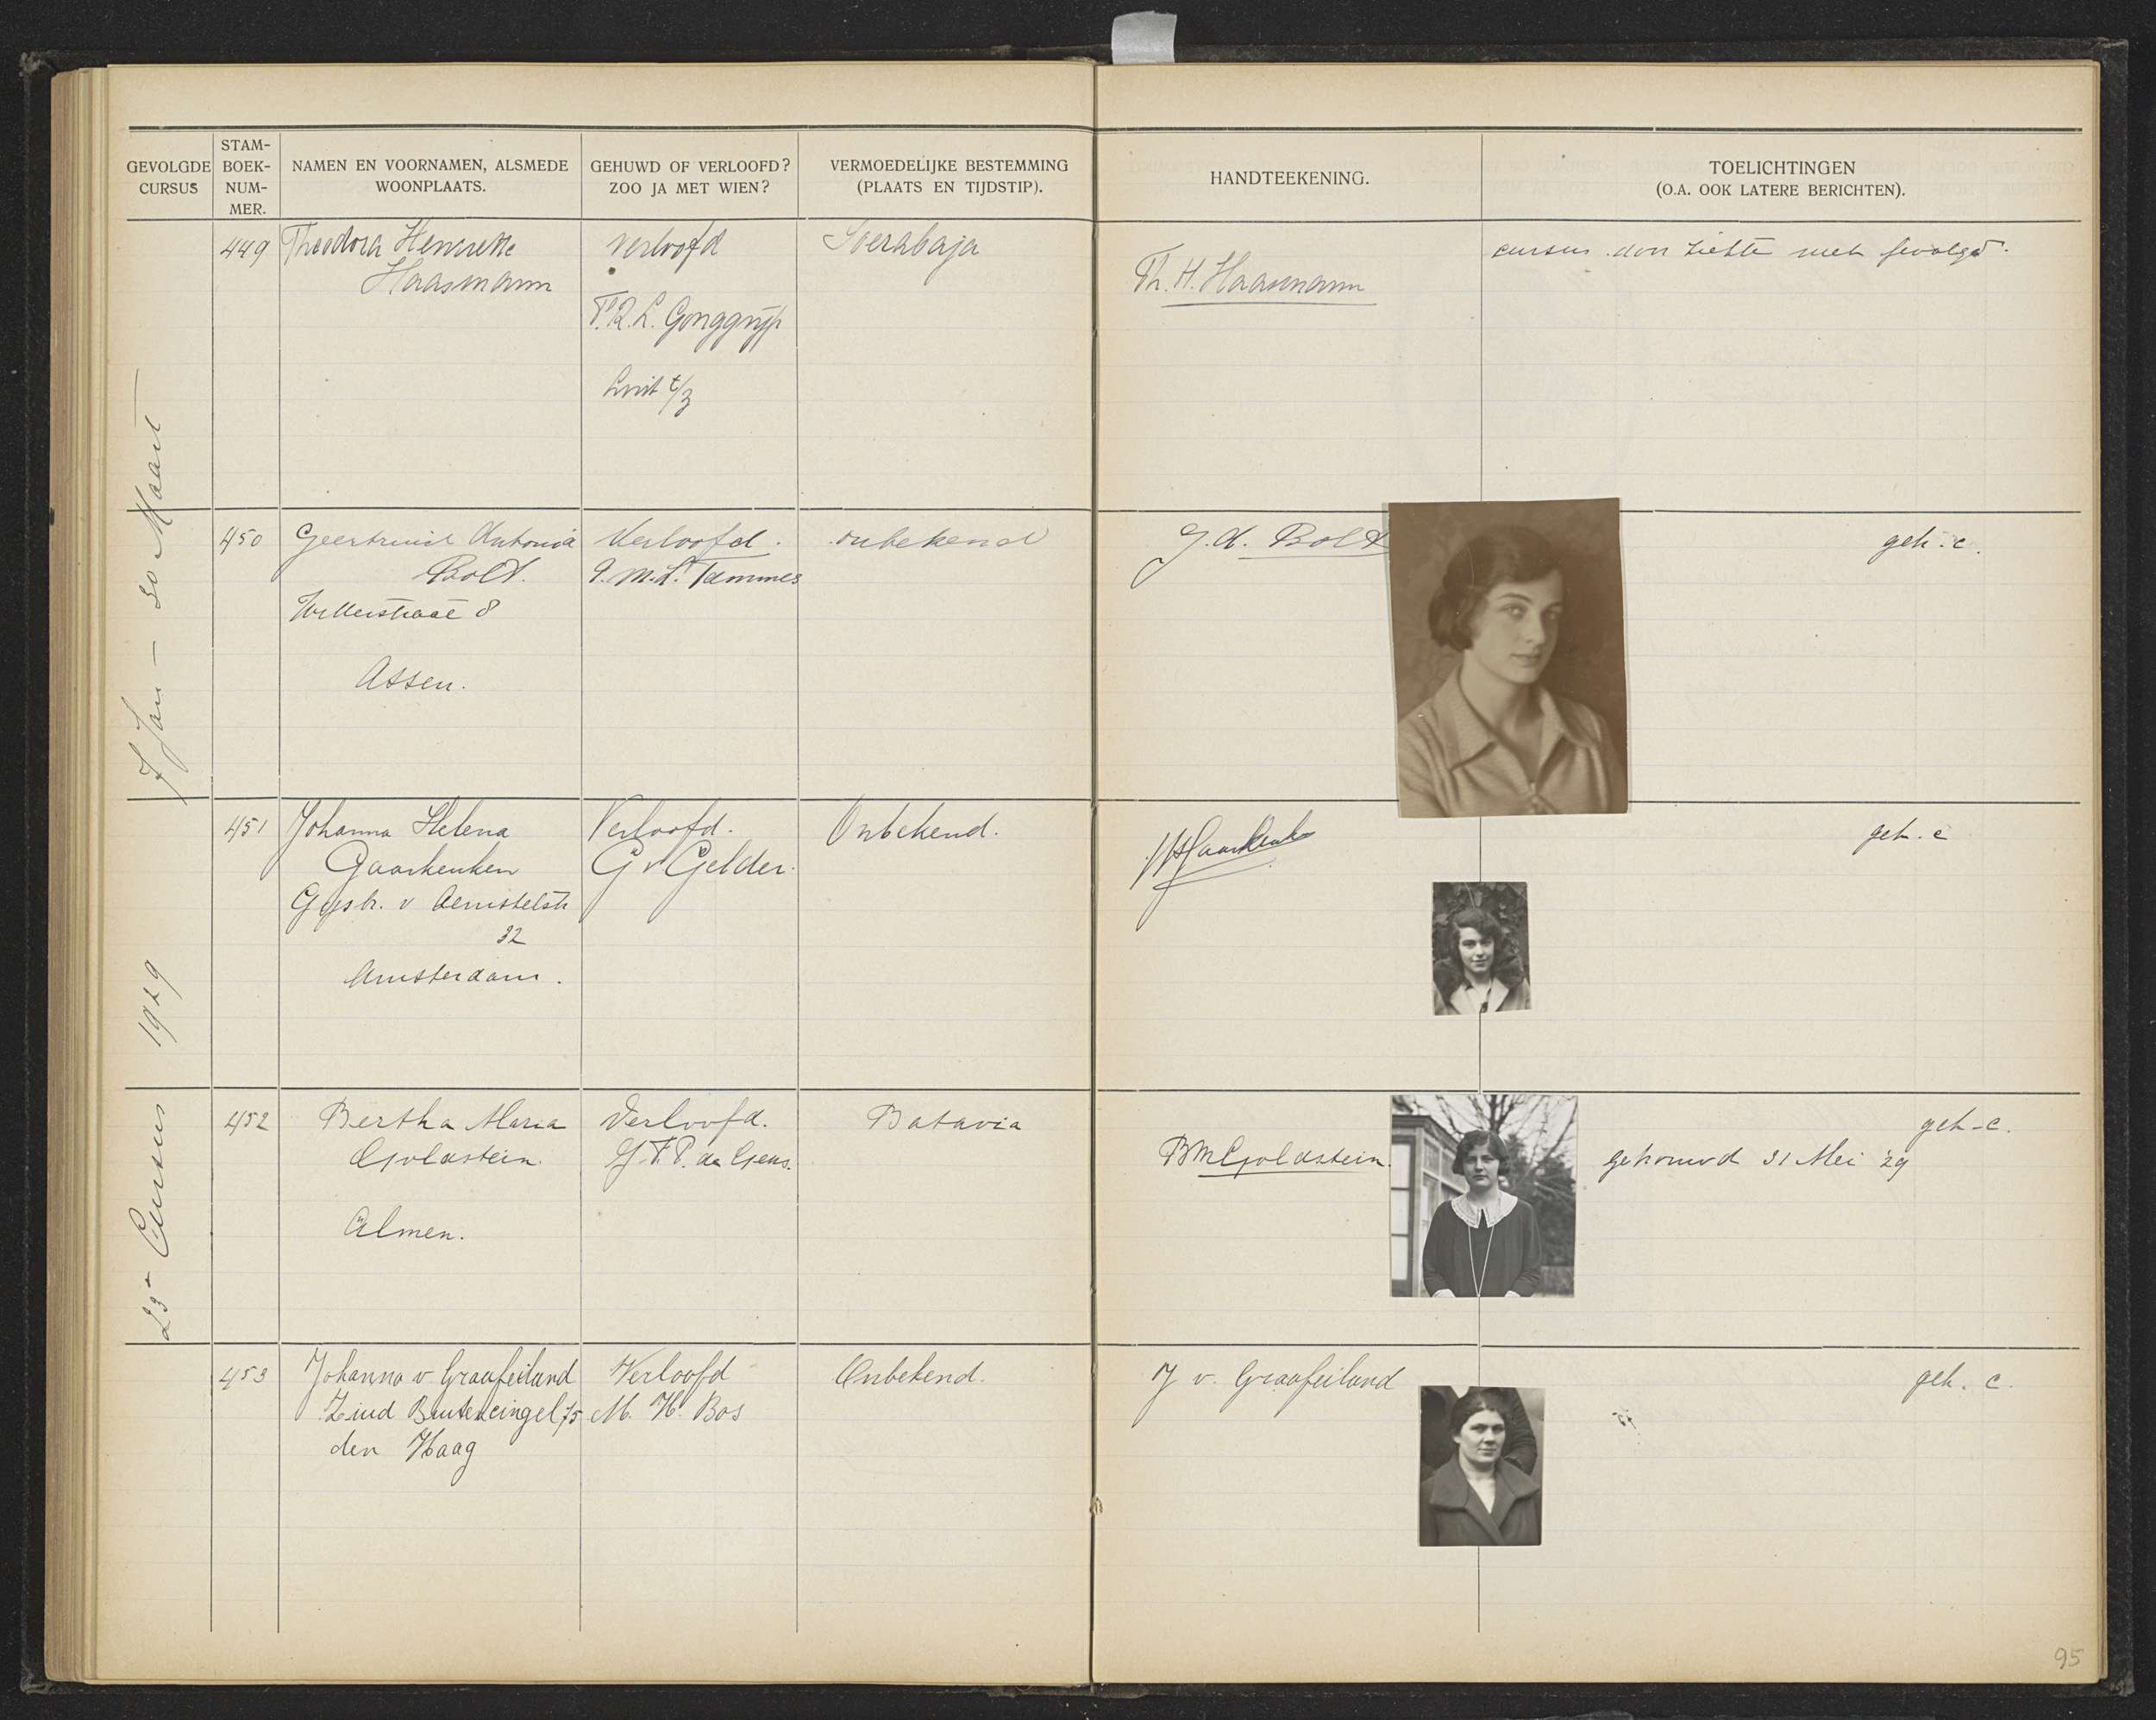 GEVOLGDE CURSUS
STAM-BOEK-NUM-MER.
NAMEN EN VOORNAMEN, ALSMEDE WOONPLAATS.
GEHUWD OF VERLOOFD? ZOO JA MET WIEN?
VERMOEDELIJKE BESTEMMING (PLAATS EN TIJDSTIP).
HANDTEEKENING.
TOELICHTINGEN (O.A. OOK LATERE BERICHTEN).
25e Cursus 1929 7 Jan — 30 Maart
449
Theodora Henriette
Haasmann
Verloofd
L. Gonggrijp
Luit t/z
Soerabaja
Th. H. Haasmann
cursus door ziekte niet gevolgd.
450
Geertruid Antonia
Bolt.
8
Assen.
Verloofd.
Tammes
onbekend
G. A. Bolt
geh. c.
451
Johanna Helena
Gaarkeuken
Gijsb. v Aemstelstr
32
Amsterdam.
Verloofd.
G v Gelder.
Onbekend.
JHGaarkeuken
geh. c
452
Bertha Maria
Goldstein.
Almen.
Verloofd.
F. P. de Geus.
Batavia
BMGoldstein.
geh-c.
getrouwd 31 Mei '29
453
Johanna v Graafeiland
Zuid Buitencingel 75
den Haag
Verloofd
M. H. Bos
Onbekend.
J v. Graafeiland
geh. c.
95